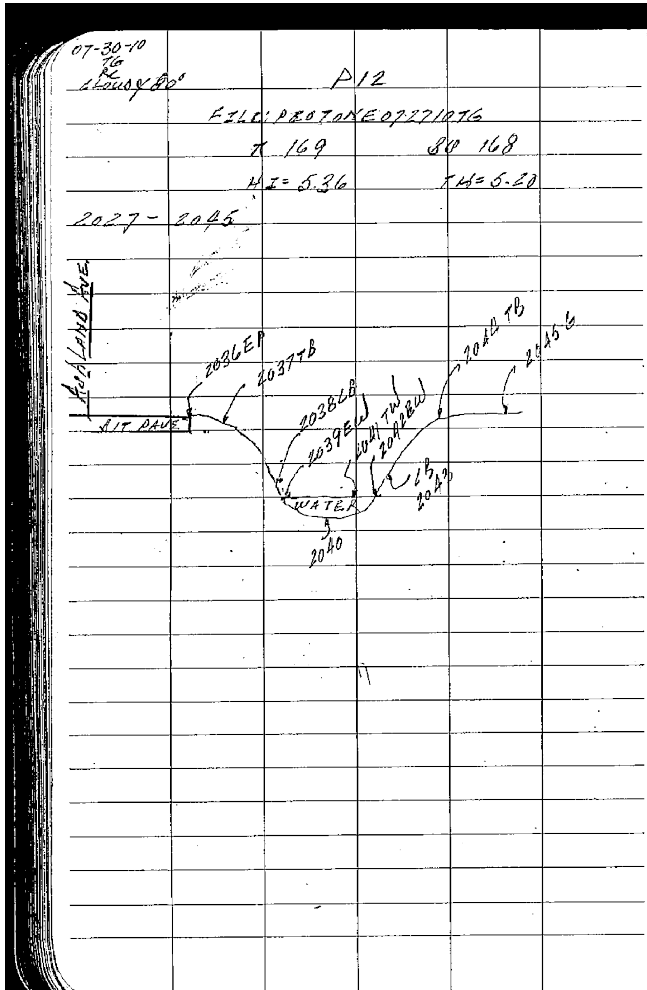 07-30-10
TG
CLOUDY 80°
P12
FILE: PROTONE072710TG
π 169 BS 168
HI = 5.36 TH = 5.20
2027 - 2045
ASHLAND AVE.
2036EP
2037TB
2038LB
2039EW
2041 TW
2042EW
2040 TB
2045G
BIT PAVE
LB
2043
WATER
2040